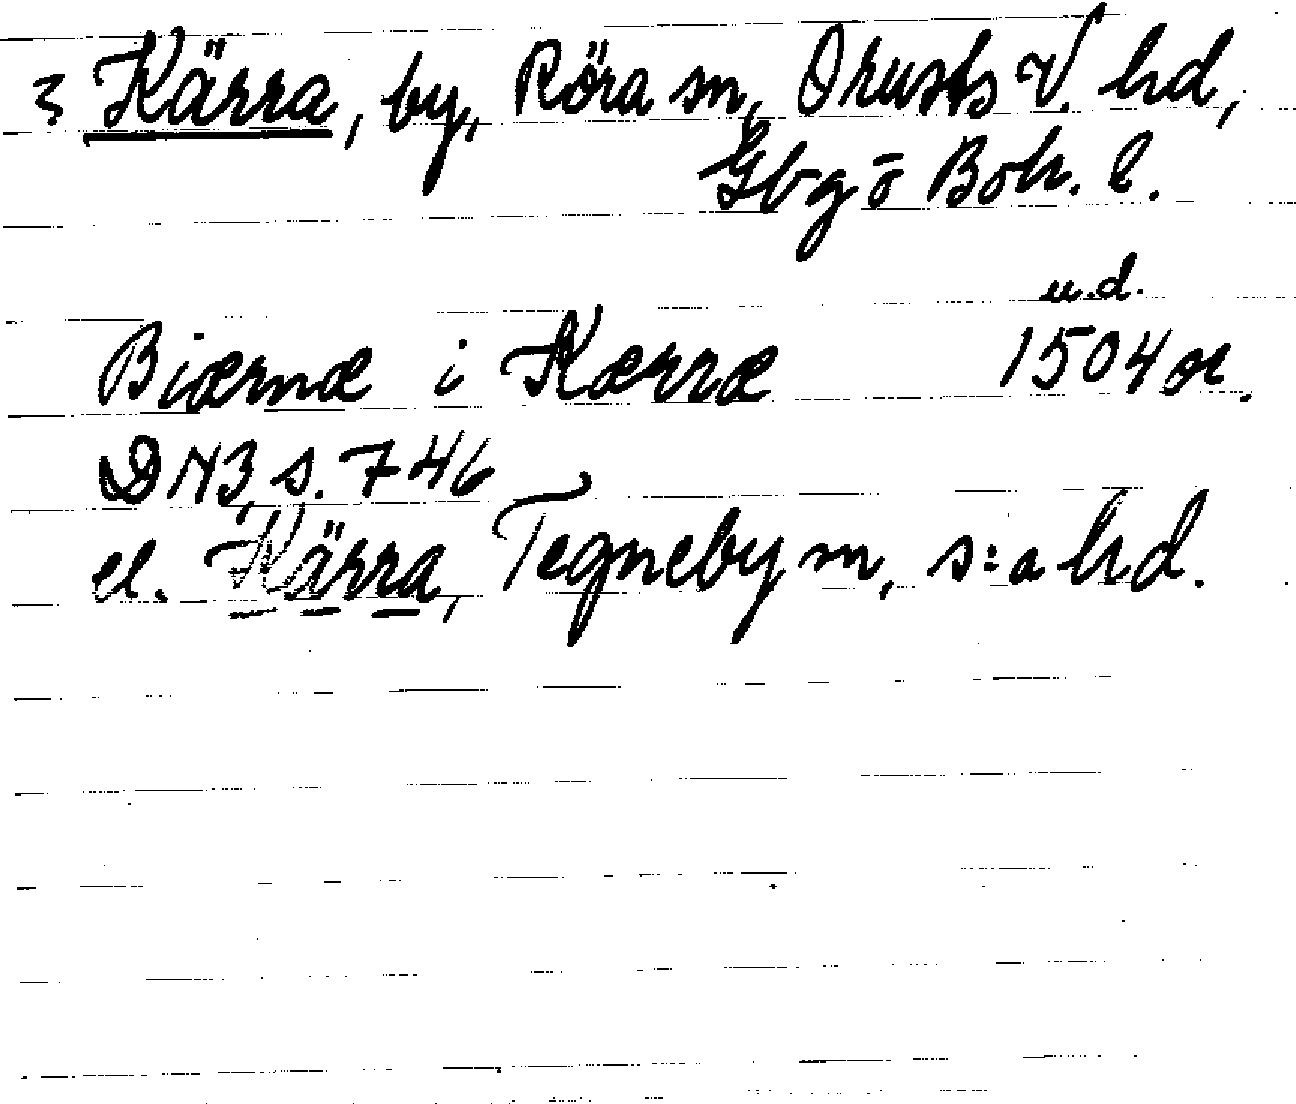 3 Kärra, by, Röra sn, Orusts V. hd,
Gbg o Boh. l.
u.d.
Biærnæ i Kærræ 1504 or.
DN3, s. 746
el. Kärra, Tegneby sn, s:a hd.